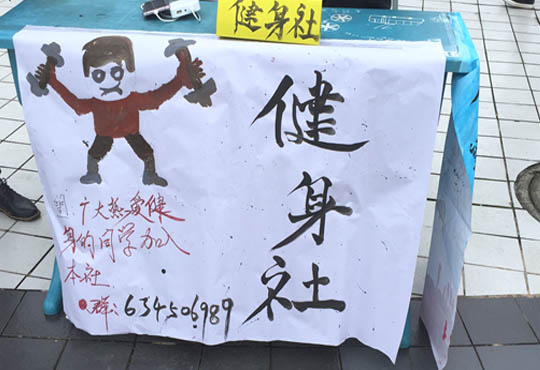 健身社
健身社
广大热爱健
身的同学加入
本社
群：634506989